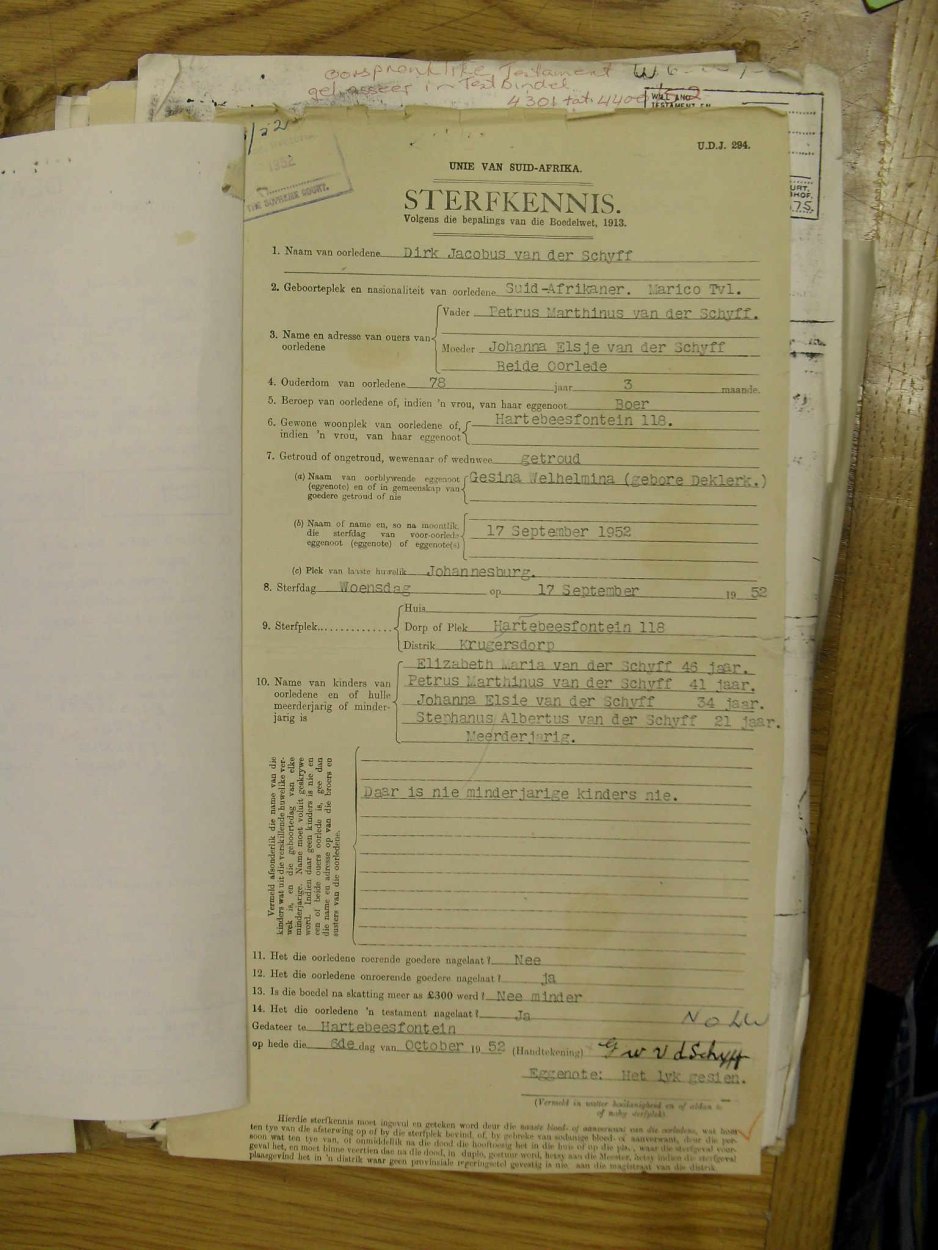 Oorspronklike Testament
geliasseer in Test Bundel
4301 tot 4400/52
WILL AND
TESTAMENT EN
URT.
HOF.
1952
THE SUPREME COURT.
U.D.J. 294.
UNIE VAN SUID-AFRIKA.
STERFKENNIS.
Volgens die bepalings van die Boedelwet, 1913.
1. Naam van oorledene Dirk Jacobus van der Schyff
2. Geboorteplek en nasionaliteit van oorledene Suid-Afrikaner. Marico Tvl.
3. Name en adresse van ouers van oorledene
Vader Petrus Marthinus van der Schyff.
Moeder Johanna Elsje van der Schyff
Beide Oorlede
4. Ouderdom van oorledene 78 jaar 3 maande.
5. Beroep van oorledene of, indien 'n vrou, van haar eggenoot Boer
6. Gewone woonplek van oorledene of, Hartebeesfontein 118.
indien 'n vrou, van haar eggenoot
7. Getroud of ongetroud, wewenaar of weduwee getroud
(a) Naam van oorblywende eggenoot Gesina Welhelmina (gebore Deklerk.)
(eggenote) en of in gemeenskap van
goedere getroud of nie
(b) Naam of name en, so na moontlik,
die sterfdag van voor-oorlede 17 September 1952
eggenoot (eggenote) of eggenote(s)
(c) Plek van laaste huwelik Johannesburg.
8. Sterfdag Woensdag op 17 September 19 52
9. Sterfplek
Huis
Dorp of Plek Hartebeesfontein 118
Distrik Krugersdorp
10. Name van kinders van
oorledene en of hulle
meerderjarig of minder-
jarig is
Elizabeth Maria van der Schyff 46 jaar.
Petrus Marthinus van der Schyff 41 jaar.
Johanna Elsie van der Schyff 34 jaar.
Stephanus Albertus van der Schyff 21 jaar.
Meerderjarig.
Vermeld afsonderlik die name van die
kinders wat uit die verskillende huwelike ver-
wek is, en die geboortedag van elke
minderjarige. Name moet voluit geskrywe
word. Indien daar geen kinders is nie en
een of beide ouers oorlede is, gee dan
die name en adresse op van die broers en
susters van die oorledene.
Daar is nie minderjarige kinders nie.
11. Het die oorledene roerende goedere nagelaat? Nee
12. Het die oorledene onroerende goedere nagelaat? ja
13. Is die boedel na skatting meer as £300 werd? Nee minder
14. Het die oorledene 'n testament nagelaat? Ja
Gedateer te Hartebeesfontein
op hede die 6de dag van October 19 52 (Handtekening) G W V d Schyff
Eggenote: Het lyk gesien.
(Vermeld in watter hoedanigheid en of aldan
of naby sterfplek).
Hierdie sterfkennis moet ingevul en geteken word deur die naaste bloed- of aanverwant van die oorledene, wat
ten tye van die afsterwing op of by die sterfplek bevind of, by gebreke van sodanige bloed- of aanverwant, deur die per-
soon wat ten tye van, of onmiddellik na die dood die hooftoesig het in die huis of op die plek, waar die sterfgeval voor-
geval het, en moet binne veertien dae na die dood, in duplo, gestuur word, hetsy aan die Meester, hetsy indien die sterfgeval
plaasgevind het in 'n distrik waar geen provinsiale regeringsetel gevestig is nie, aan die magistraat van die distrik.